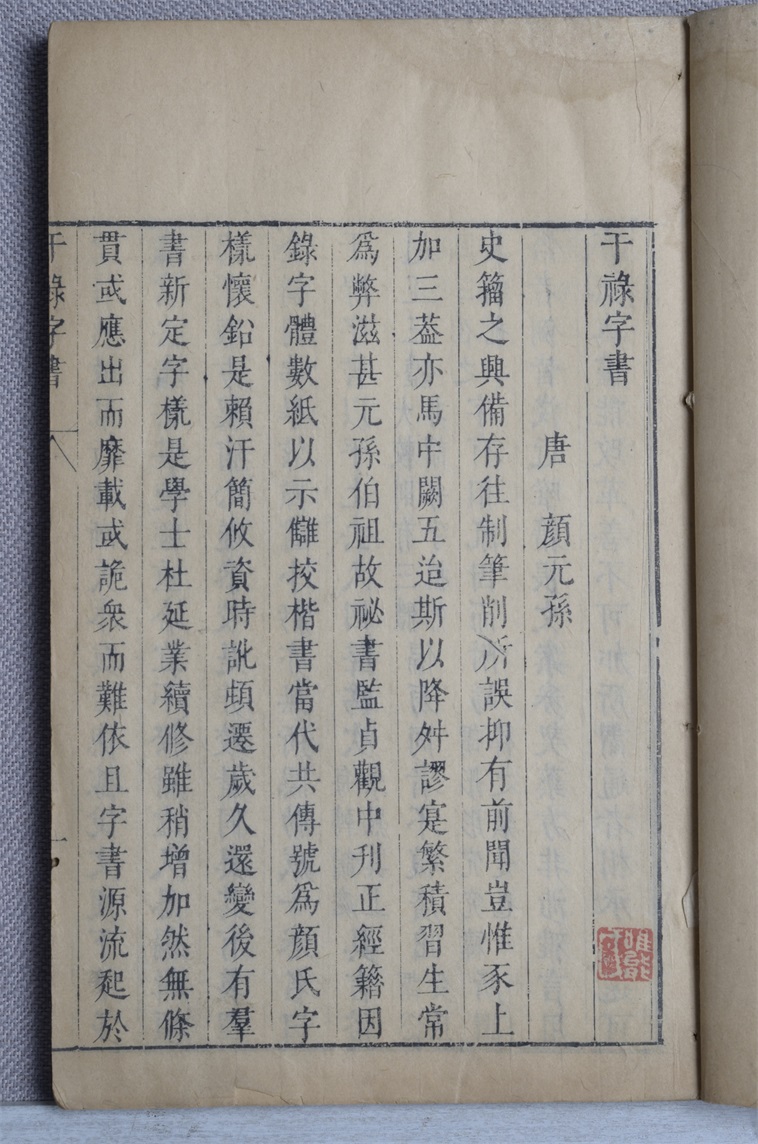 干祿字書
唐　顏元孫
史籀之興備存往制筆削所誤抑有前聞豈惟豕上
加三葢亦馬中闕五迨斯以降舛謬寔繁積習生常
爲弊滋甚元孫伯祖故祕書監貞觀中刊正經籍因
錄字體數紙以示讎挍楷書當代共傳號爲顏氏字
樣懷鉛是賴汗簡攸資時訛頓遷歲久還變後有羣
書新定字樣是學士杜延業續修雖稍增加然無條
貫或應出而靡載或詭衆而難依且字書源流起於
干祿字書
一